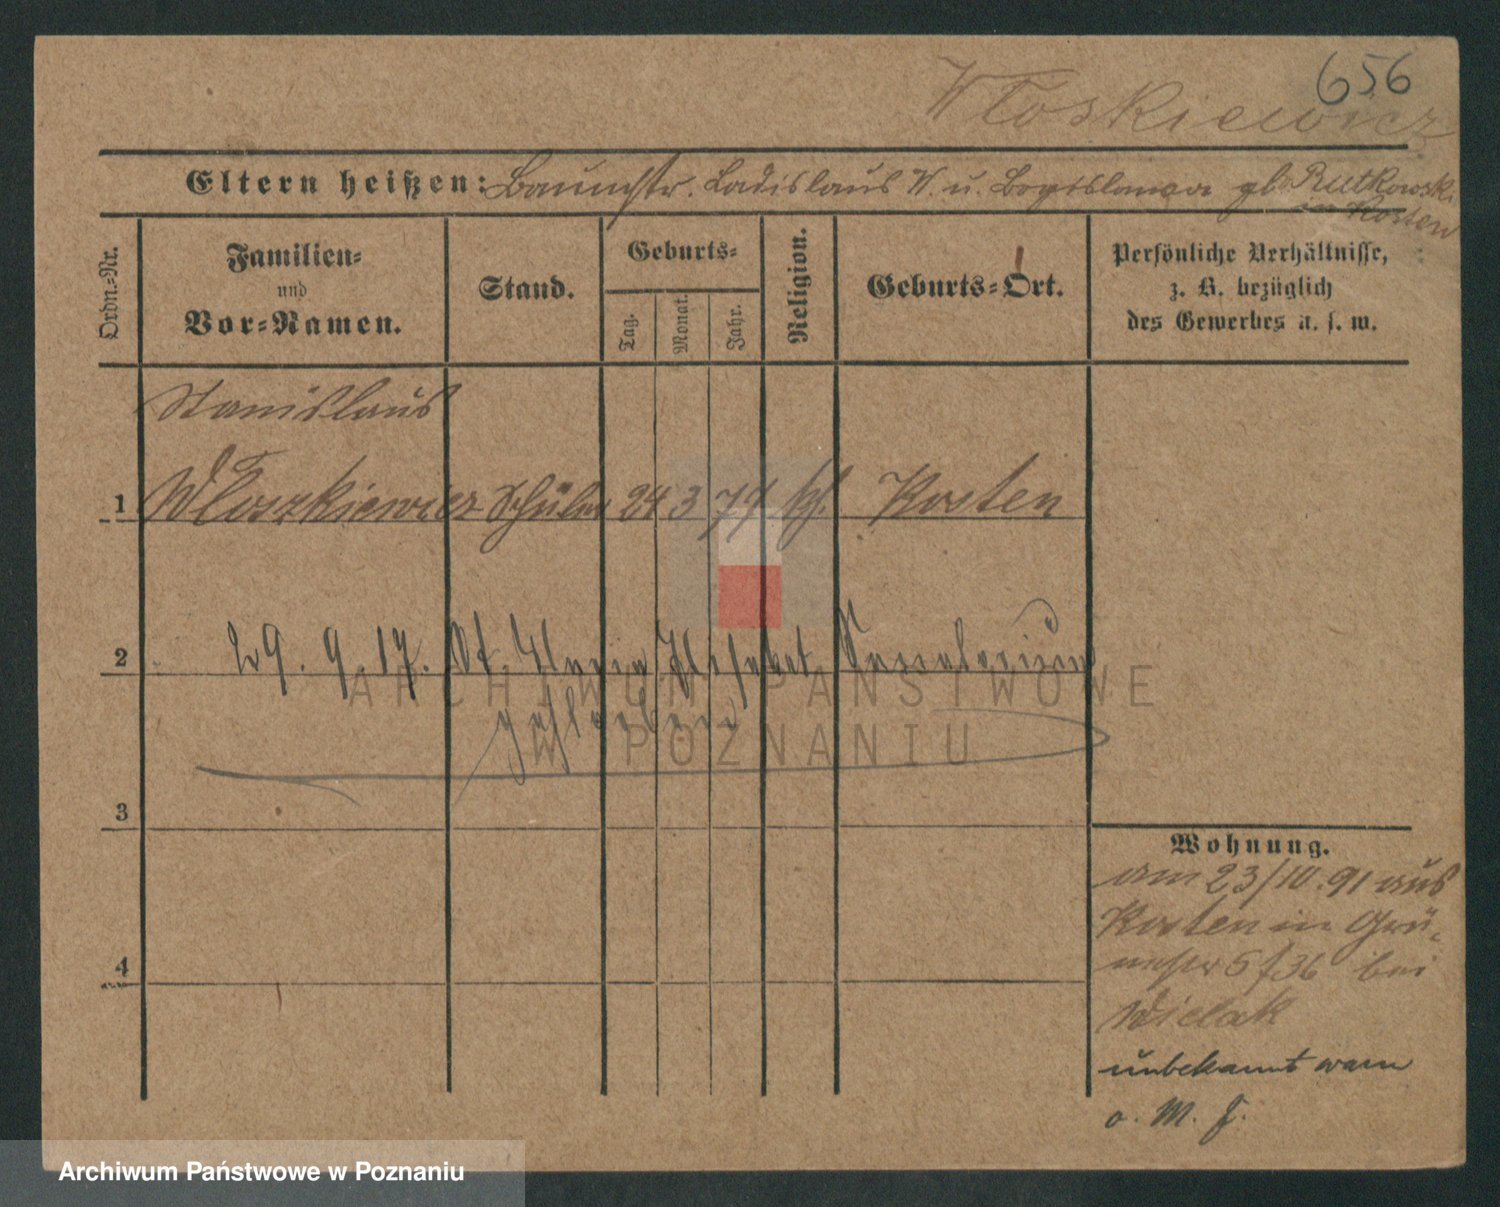 656
Włoskiewicz
Eltern heißen: Baumstr. Ladislaus W. u. Bogislawa gb Rutkowski
in Kosten
Ordn.-Nr.
Familien-
und
Vor-Namen.
Stand.
Geburts-
Tag.
Monat.
Jahr.
Religion.
Geburts-Ort.
Persönliche Verhältnisse,
z. B. bezüglich
des Gewerbes u. s. w.
Stanislaus
1 Włoszkiewicz Schüler 24 3 77 kth. Kosten
2 29. 9. 17. St. Maria Elisabet Sanatorium
gestorben
ARCHIWUM PAŃSTWOWE
W POZNANIU
3
Wohnung.
am 23/10. 91 aus
Kosten in Grü-
nestr 5 f 36 bei
Wielak
4
unbekannt wann
o. M. f.
Archiwum Państwowe w Poznaniu